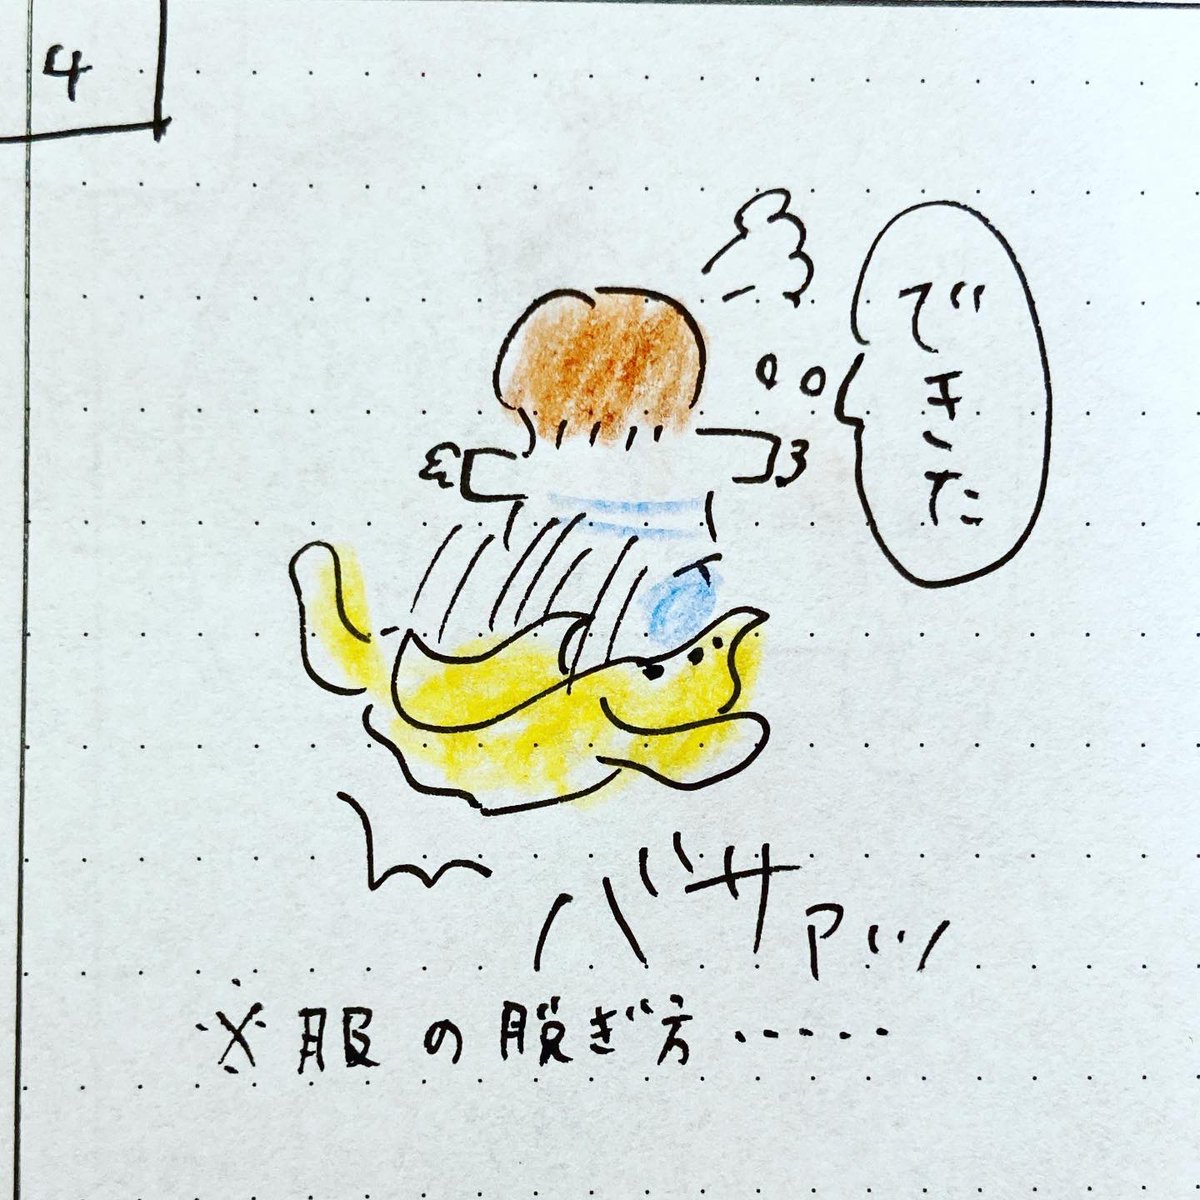 4
できた
バサァッ
※服の脱ぎ方……